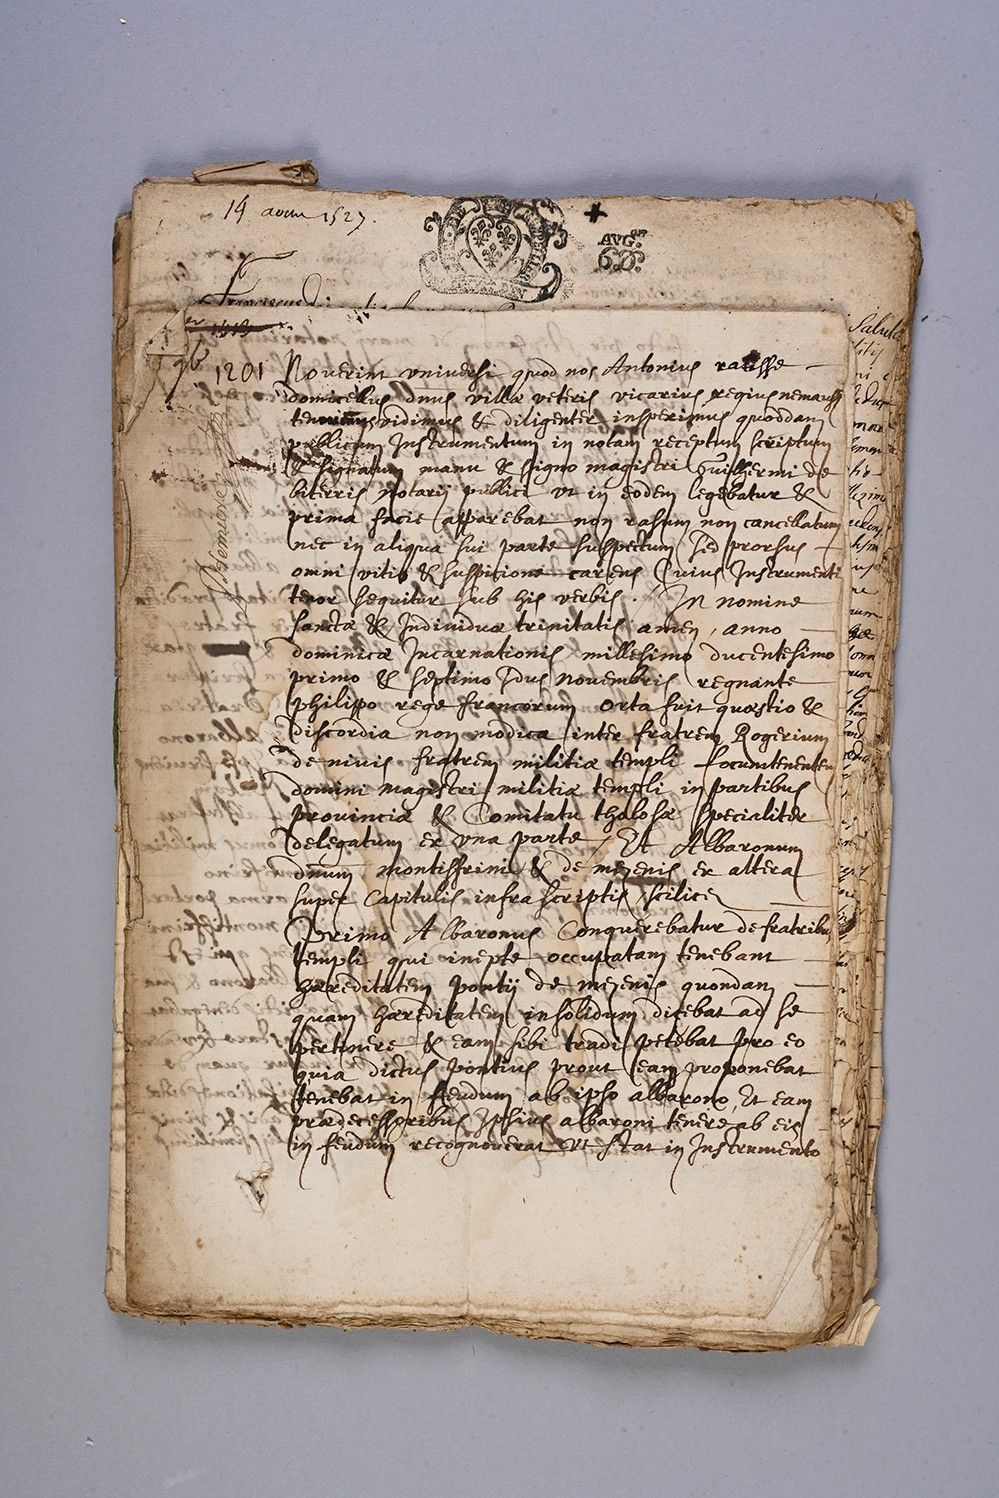 14 aoux 1527.
AVG.
60.
Franciscus
1201 Noverint vniversi quod nos Antonius ratisse
domicellus dnus villæ veteris vicarius regius nemausi
tenorimus vidimus & diligenter inspeximus quoddam
publicum Instrumentum in notam receptum scriptum
& signatum manu & signo magistri Guilhermi de
biterris Notarij publici vt in eodem legebatur &
prima facie apparebat non rassum non cancellatum
nec in aliqua sui parte suspectum sed prorsus
omni vitio & suspicione carens Cuius Instrumenti
tenor sequitur sub his verbis. In nomine
sanctæ & Individuæ trinitatis amen, anno
dominicæ Incarnationis millesimo ducentesimo
primo & septimo Idus novembris regnante
philippo rege francorum orta fuit quæstio &
discordia non modica inter fratrem Rogerium
de nivis fratrem militiæ templi Locumtenentem
domini magistri militiæ templi in partibus
provinciæ & Comitatu tholosæ specialiter
delegatum ex vna parte Et Albaronum
dnum montisfrini & de mezenis ex altera
super Capitulis infra scriptis scilicet
Primo Albaronus Conquerebatur de fratribus
templi qui inepte occupatam tenebant
hæreditatem pontij de mezenis quondam
quam hæreditatem insolidum dicebat ad se
pertinere & eam sibi tradi petebat pro eo
quia dictus pontius prout eam proponebat
tenebat in feudum ab ipso albarono, Et eam
prædecessoribus Ipsius albaroni tenere ab eis
in feudum recognoverat vt stat in Instrumento